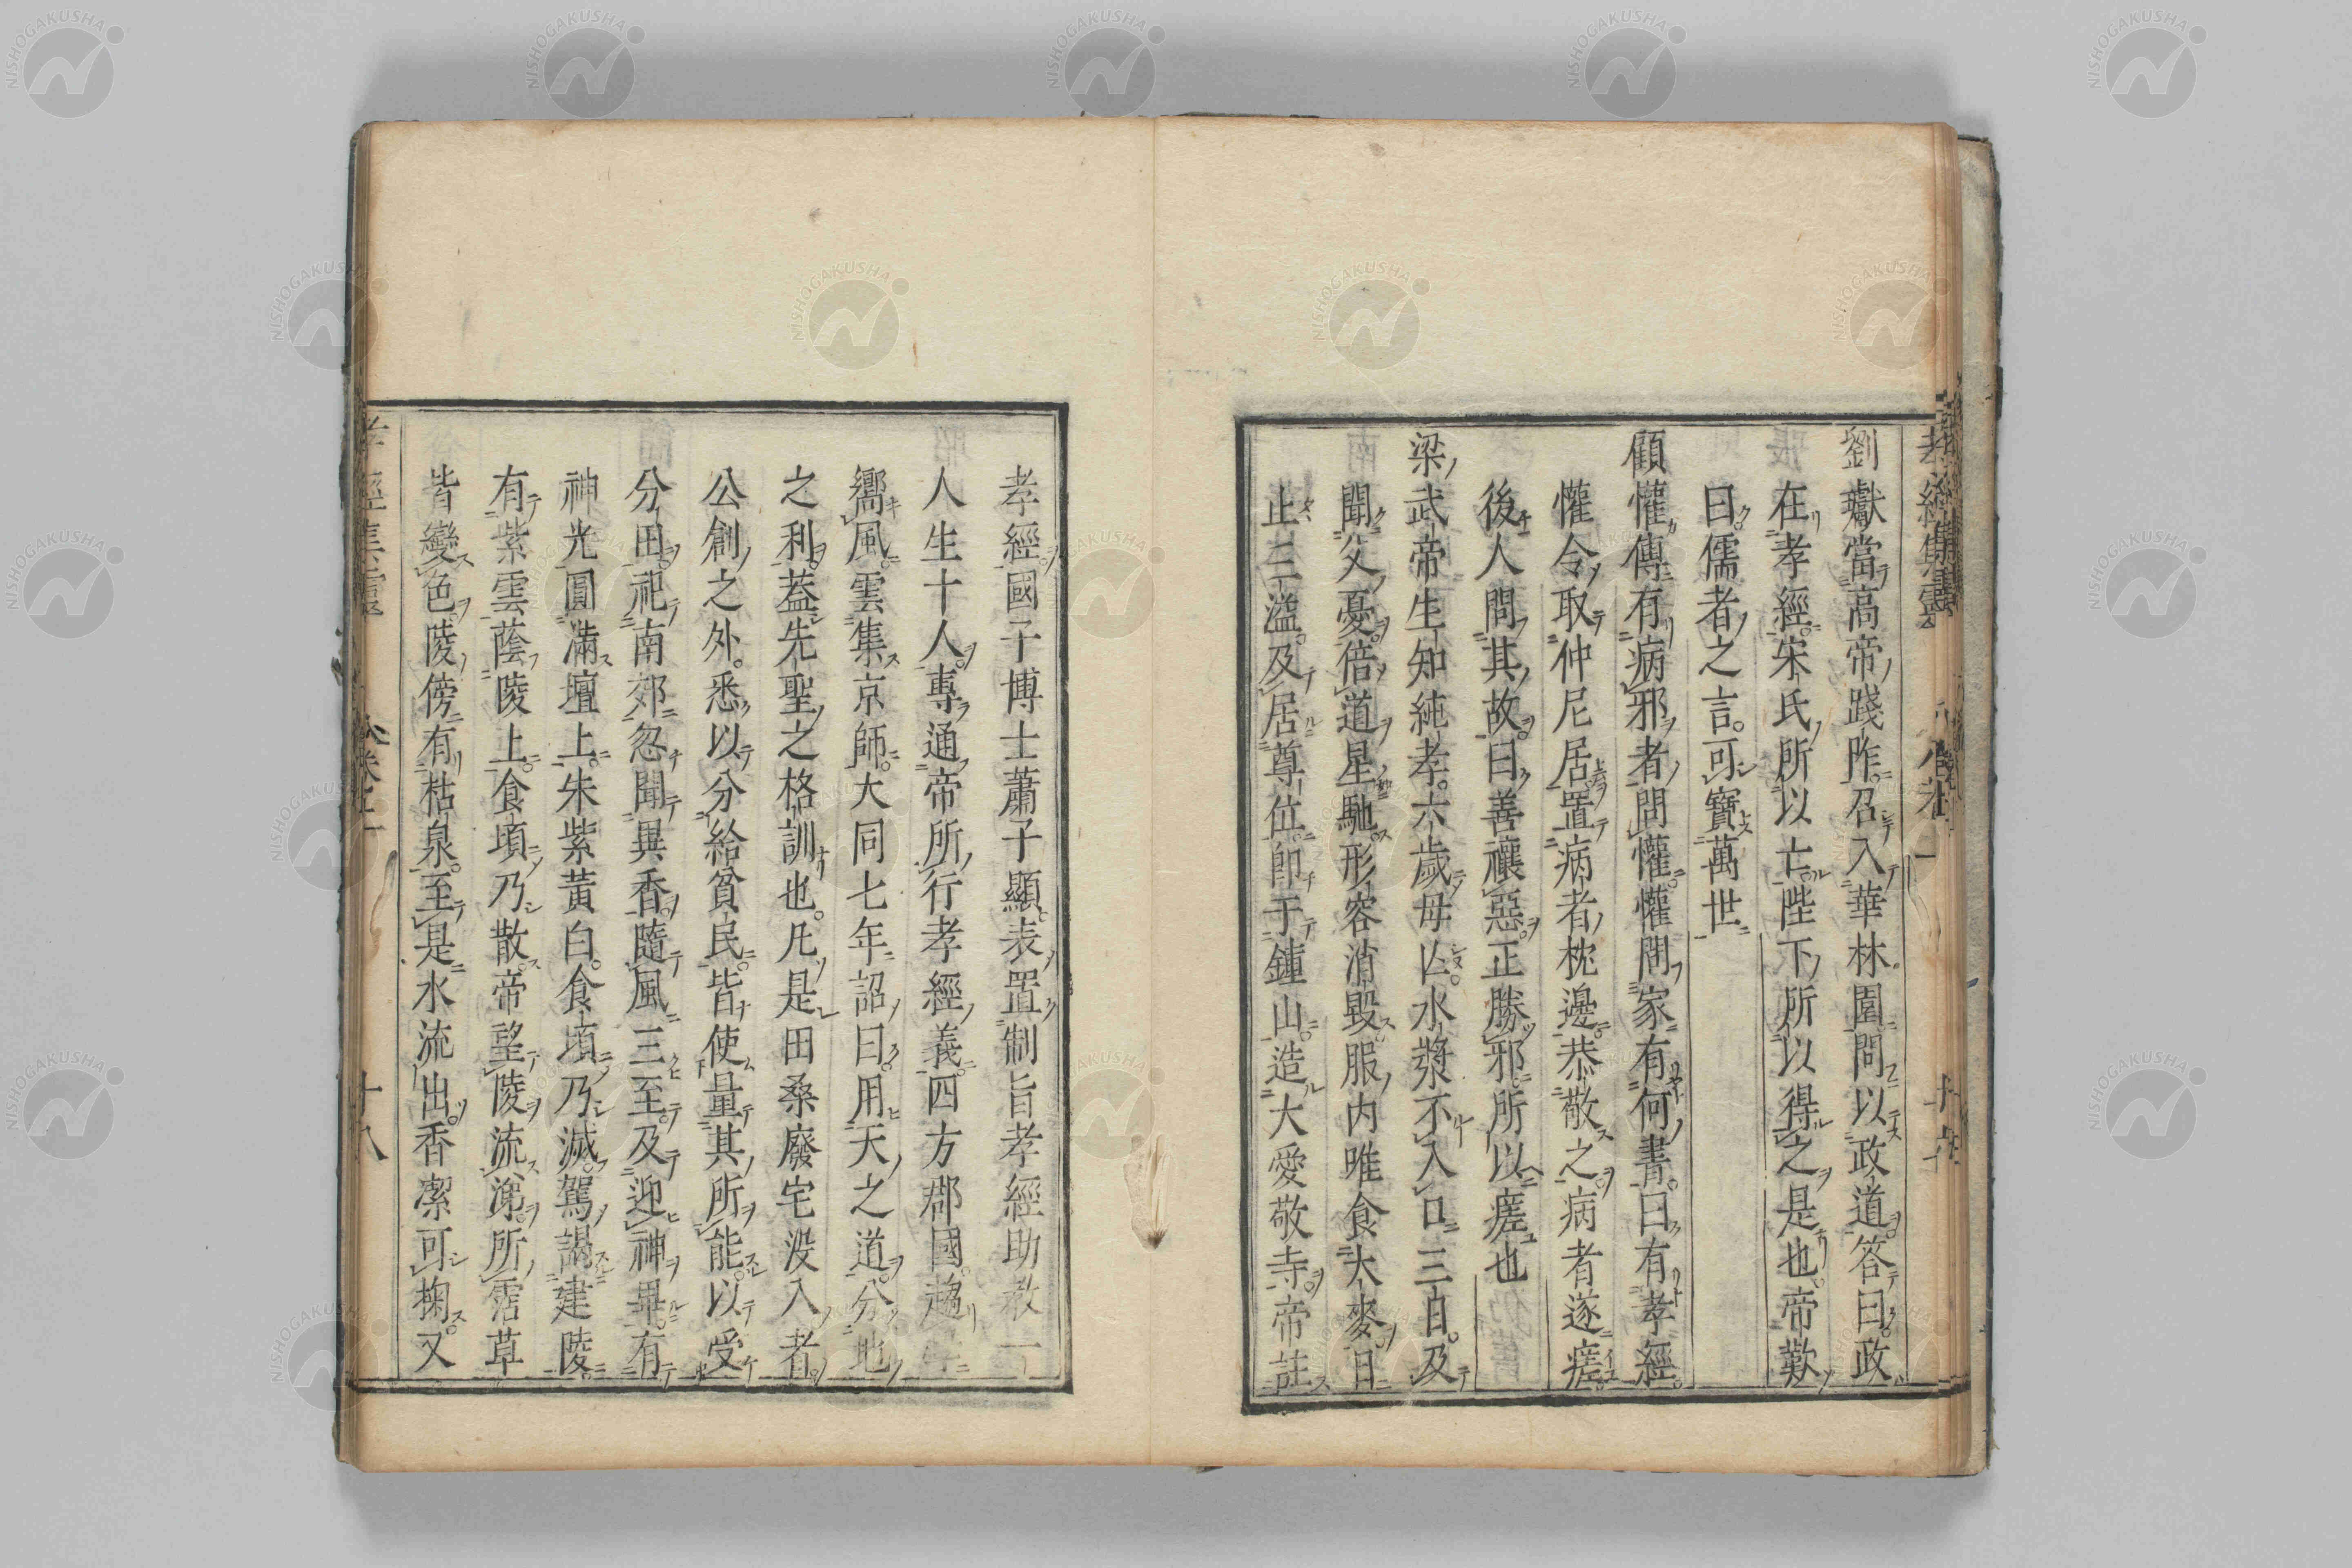 劉瓛當高帝踐胙召入華林園問以政道答曰政
在孝經宋氏所以亡陛下所以得之是也帝歎
曰儒者之言可寶萬世
顧懽傳有病邪者問懽懽問家有何書曰有孝經
懽令取仲尼居置病者枕邊恭敬之病者遂瘥
後人問其故曰善禳惡正勝邪所以瘥也
梁武帝生知純孝六歲母亾水漿不入口三日及
聞父憂倍道星馳形容消毀服内唯食大麥日
止二溢及居尊位即于鍾山造大愛敬寺帝註
孝經國子博士蕭子顯表置制旨孝經助教一
人生十人專通帝所行孝經義四方郡國趨學
嚮風雲集京師大同七年詔曰用天之道分地
之利葢先聖之格訓也凡是田桑廢宅没入者
公創之外悉以分給貧民皆使量其所能以受
分田祀南郊忽聞異香隨風三至及迎神畢有
神光圓滿壇上朱紫黃白食頃乃滅駕謁建陵
有紫雲蔭陵上食頃乃散帝望陵流涕所霑草
皆變色陵傍有枯泉至是水流出香潔可掬又
孝經集靈
十八
NISHOGAKUSHA